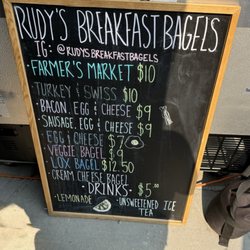 RUDY'S BREAKFAST BAGELS
IG: @RUDYSBREAKFASTBAGELS
• FARMER'S MARKET $10
• TURKEY & SWISS $10
• BACON, EGG & CHEESE $9
• SAUSAGE, EGG & CHEESE $9
• EGG & CHEESE $7
• VEGGIE BAGEL $9
• LOX BAGEL $12.50
• CREAM CHEESE BAGEL
• DRINKS • $5.00
• LEMONADE
• UNSWEETENED ICE
TEA